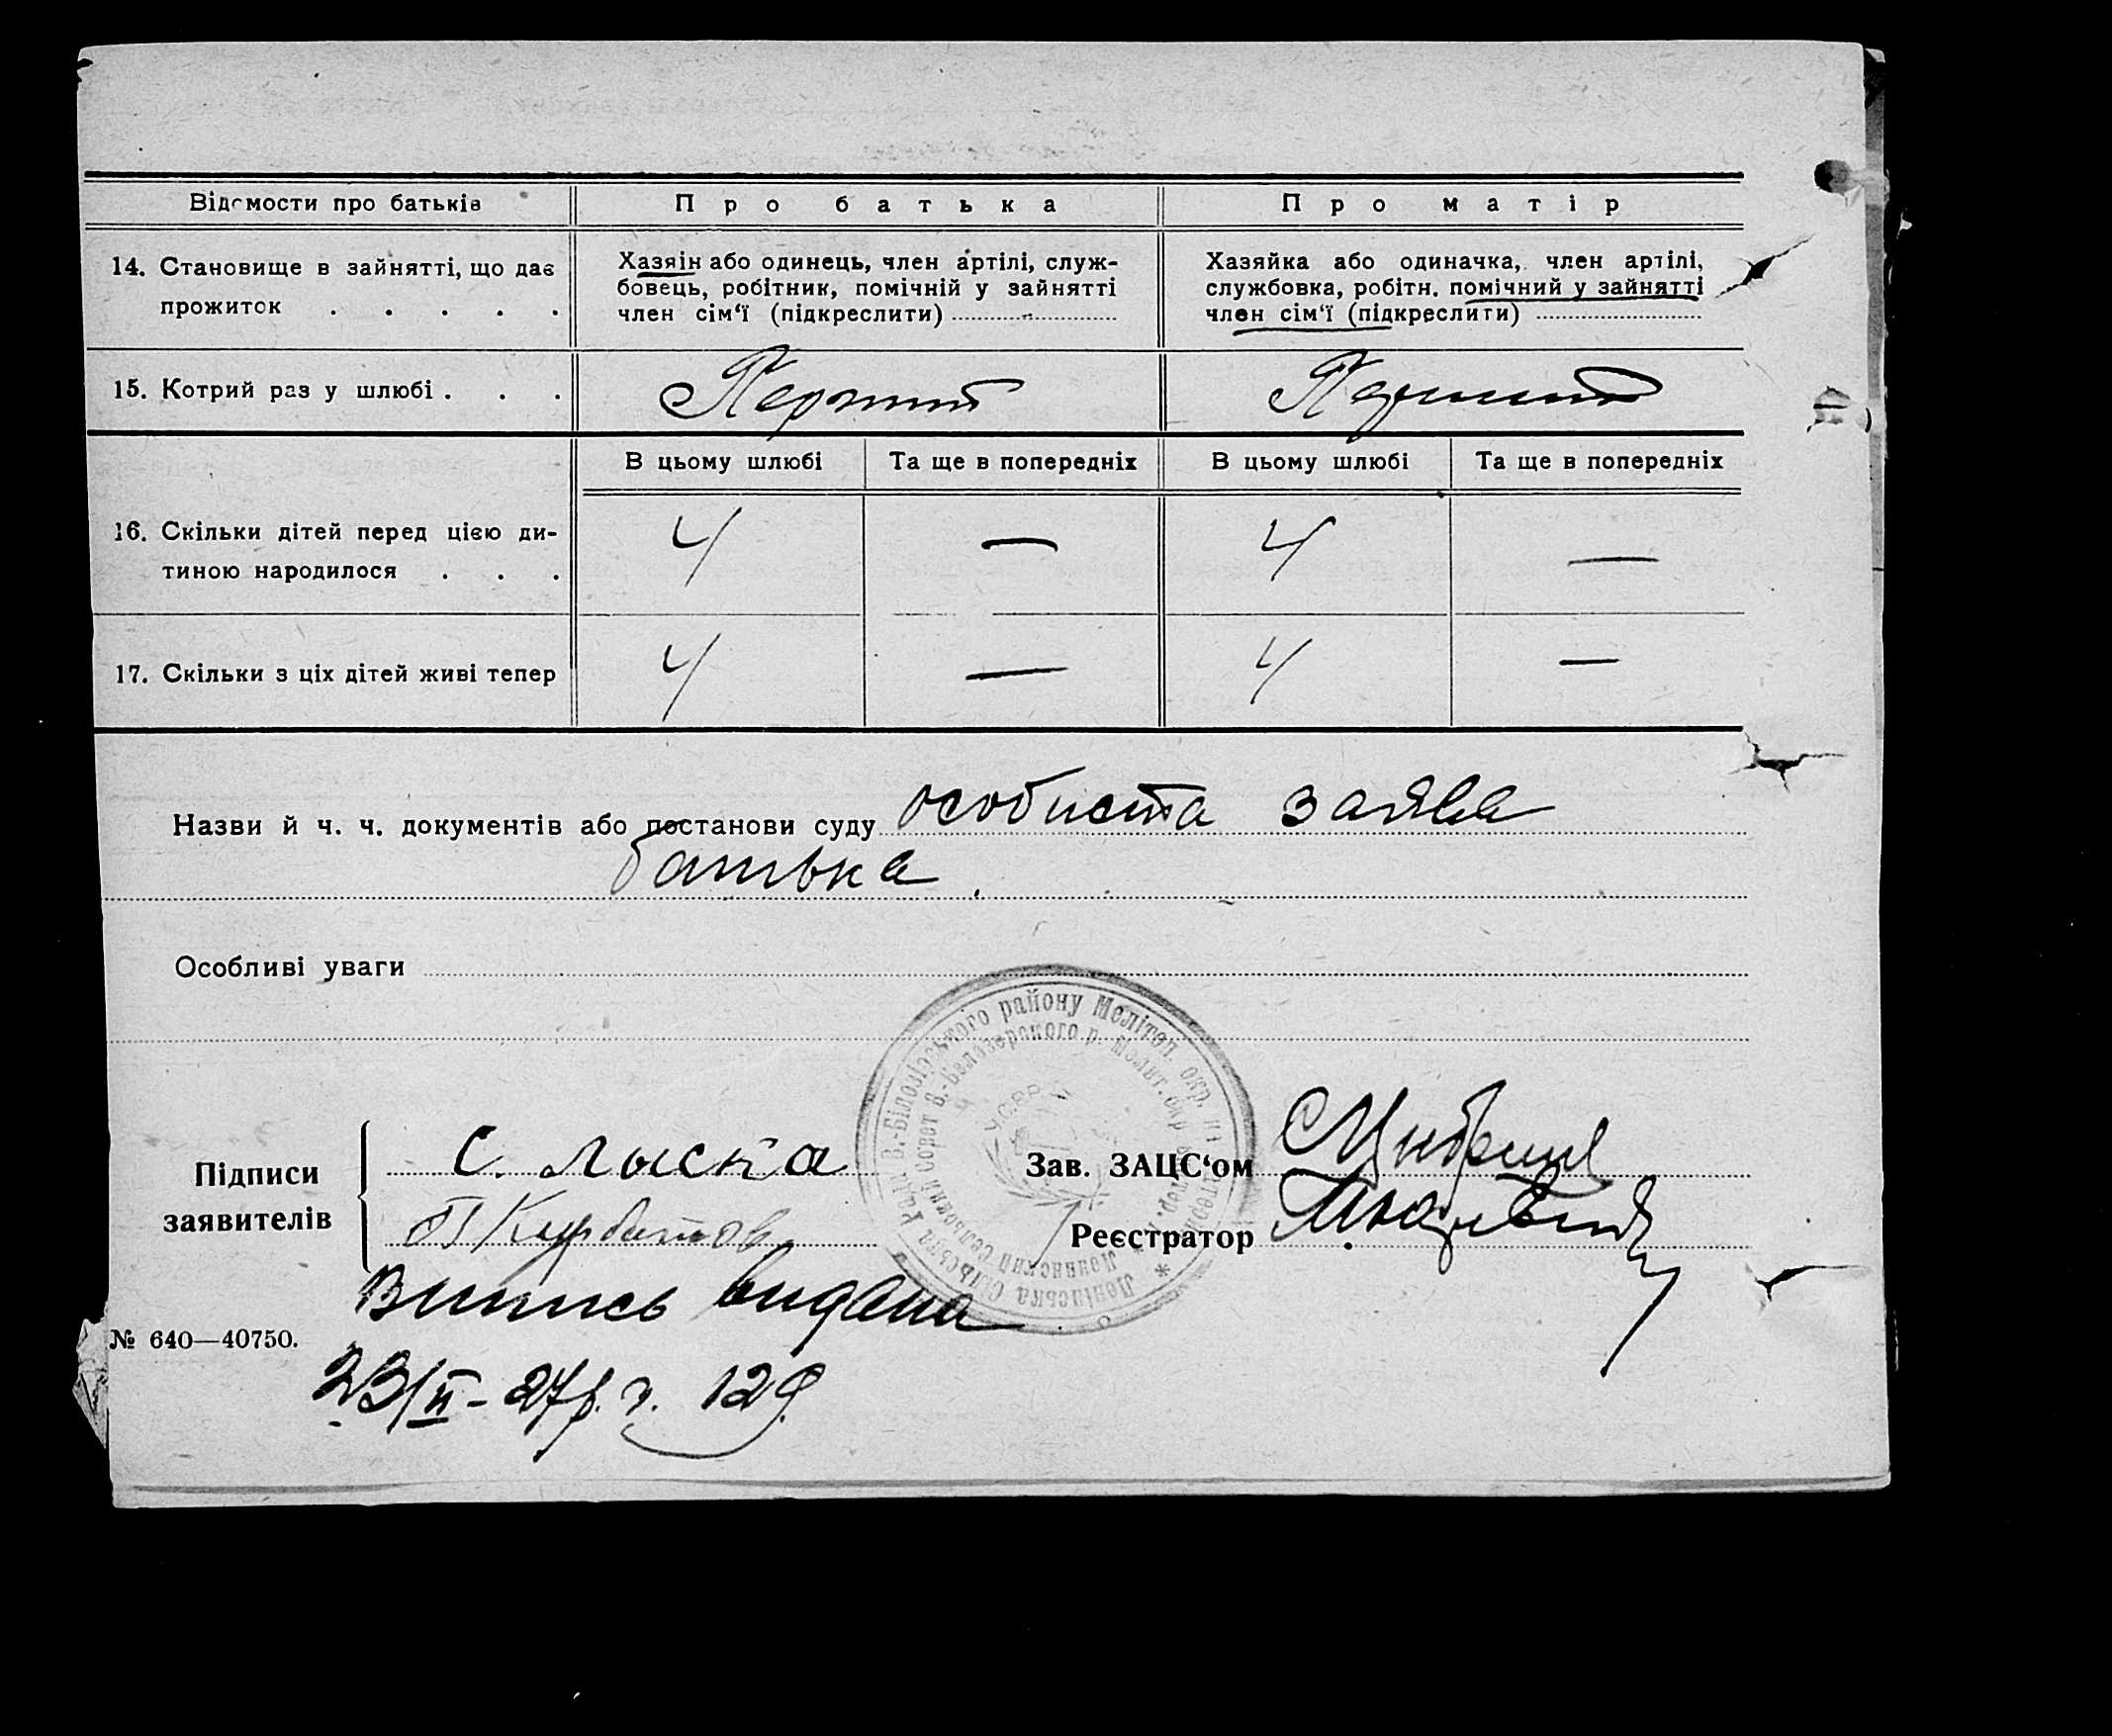 Відомости про батьків
Про батька
Про матір
14. Становище в зайнятті, що дає
прожиток . . . . .
Хазяін або одинець, член артілі, служ-
бовець, робітник, помічній у зайнятті
член сім‘ї (підкреслити)
Хазяйка або одиначка, член артілі,
службовка, робітн. помічний у зайнятті
член сім‘ї (підкреслити)
15. Котрий раз у шлюбі . . .
Перший
Перший
В цьому шлюбі
Та ще в попередніх
В цьому шлюбі
Та ще в попередніх
16. Скільки дітей перед цією ди-
тиною народилося . . .
4
—
4
—
17. Скільки з ціх дітей живі тепер
4
—
4
—
Назви й ч. ч. документів або постанови суду особиста заява
батька.
Особливі уваги
В.-Білозірського району Мелітоп. окр.
В.-Белозерского р. Мелит. окр
У.С.Р.Р.
Підписи
заявителів
С. Лыска
П Курбатов
Зав. ЗАЦС‘ом
Реєстратор
Випись видана
№ 640—40750.
23/II-27р. ч. 129.